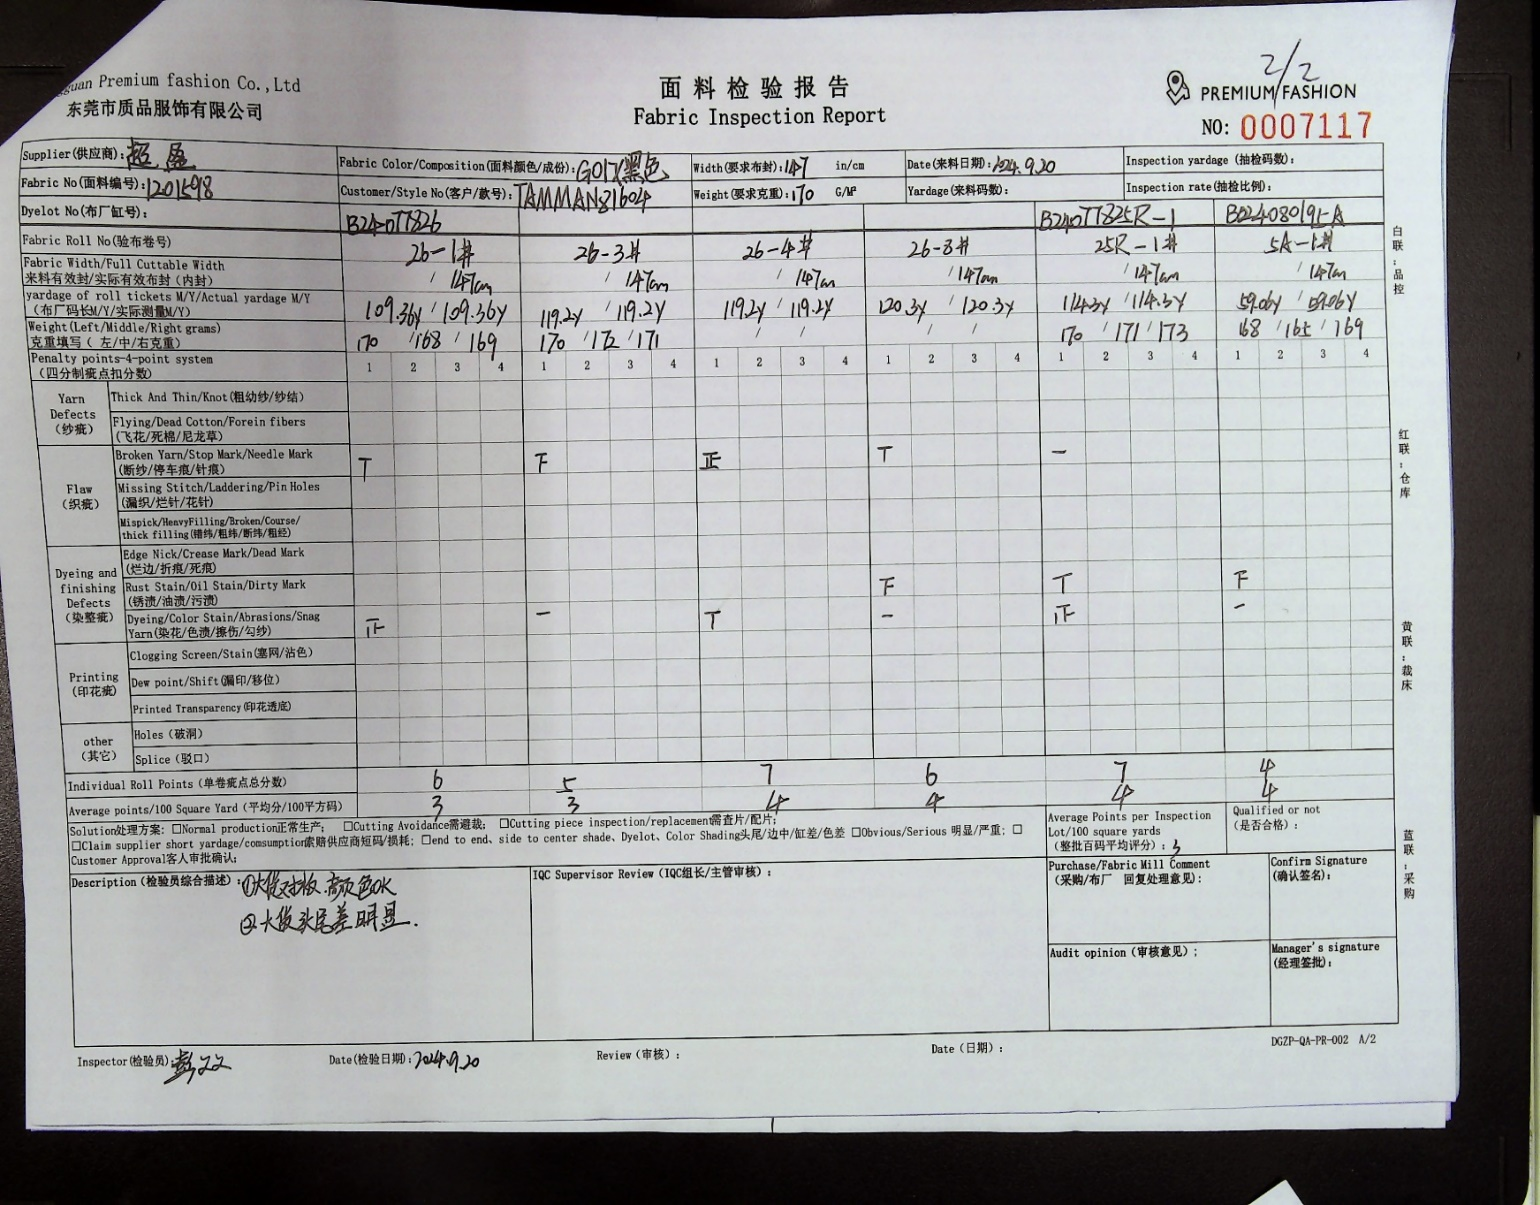 guan Premium fashion Co.,Ltd
东莞市质品服饰有限公司
面料检验报告
Fabric Inspection Report
2/2
PREMIUM FASHION
NO: 0007117
Supplier(供应商): 超盈
Fabric Color/Composition(面料颜色/成份): G017(黑色
Width(要求布封): 147 in/cm
Date(来料日期): 2024.9.20
Inspection yardage (抽检码数):
Fabric No(面料编号): 1201598
Customer/Style No(客户/款号): TAMMAN81604
Weight(要求克重): 170 G/M²
Yardage(来料码数):
Inspection rate(抽检比例):
Dyelot No(布厂缸号): B240T7826 B240T7825R-1 B024080191-A
Fabric Roll No(验布卷号) 26-1# 26-3# 26-4# 26-8# 25R-1# 5A-1#
Fabric Width/Full Cuttable Width
来料有效封/实际有效布封(内封) / 147cm / 147cm / 147cm / 147cm / 147cm / 147cm
yardage of roll tickets M/Y/Actual yardage M/Y
(布厂码长M/Y/实际测量M/Y) 109.36y / 109.36y 119.2y / 119.2y 119.2y / 119.2y 120.3y / 120.3y 114.3y / 114.3y 59.06y / 59.06y
Weight(Left/Middle/Right grams)
克重填写( 左/中/右克重) 170 / 168 / 169 170 / 172 / 171 / / / / 170 / 171 / 173 168 / 165 / 169
Penalty points-4-point system
(四分制疵点扣分数) 1 2 3 4 1 2 3 4 1 2 3 4 1 2 3 4 1 2 3 4 1 2 3 4
Yarn Defects (纱疵)
Thick And Thin/Knot(粗幼纱/纱结)
Flying/Dead Cotton/Forein fibers
(飞花/死棉/尼龙草)
Flaw (织疵)
Broken Yarn/Stop Mark/Needle Mark
(断纱/停车痕/针痕) T F 正 T 一
Missing Stitch/Laddering/Pin Holes
(漏织/烂针/花针)
Mispick/HeavyFilling/Broken/Course/
thick filling(错纬/粗纬/断纬/粗经)
Dyeing and finishing Defects (染整疵)
Edge Nick/Crease Mark/Dead Mark
(烂边/折痕/死痕)
Rust Stain/Oil Stain/Dirty Mark
(锈渍/油渍/污渍) F T F
Dyeing/Color Stain/Abrasions/Snag
Yarn(染花/色渍/擦伤/勾纱) 正 一 T 一 正 一
Printing (印花疵)
Clogging Screen/Stain(塞网/沾色)
Dew point/Shift(漏印/移位)
Printed Transparency(印花透底)
other (其它)
Holes (破洞)
Splice (驳口)
Individual Roll Points (单卷疵点总分数) 6 5 7 6 7 4
Average points/100 Square Yard (平均分/100平方码) 3 3 4 4 4 4
Solution处理方案: □Normal production正常生产; □Cutting Avoidance需避裁; □Cutting piece inspection/replacement需查片/配片;
□Claim supplier short yardage/comsumption索赔供应商短码/损耗; □end to end、side to center shade、Dyelot、Color Shading头尾/边中/缸差/色差 □Obvious/Serious 明显/严重; □
Customer Approval客人审批确认:
Average Points per Inspection
Lot/100 square yards
(整批百码平均评分): 3
Qualified or not
(是否合格):
Description (检验员综合描述): ①大货对板.颜色OK
②大货头尾差明显.
IQC Supervisor Review (IQC组长/主管审核):
Purchase/Fabric Mill Comment
(采购/布厂 回复处理意见):
Confirm Signature
(确认签名):
Audit opinion (审核意见):
Manager's signature
(经理签批):
Inspector(检验员):
Date(检验日期): 2024.9.20
Review (审核):
Date (日期):
DGZP-QA-PR-002 A/2
白联:品控
红联:仓库
黄联:裁床
蓝联:采购